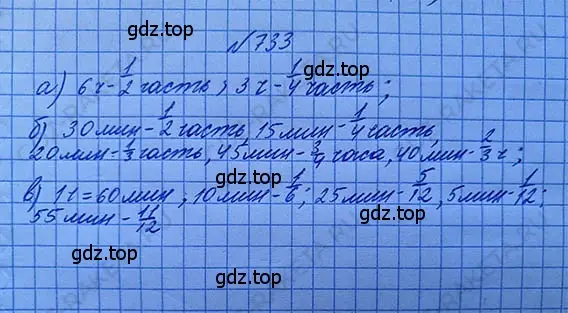 №733
gdz.top
а) 6 ч - 1/2 часть; 3 ч - 1/4 часть;
gdz.top
б) 30 мин - 1/2 часть, 15 мин - 1/4 часть,
20 мин - 1/3 часть, 45 мин - 3/4 часа, 40 мин - 2/3 ч;
gdz.top
в) 1 ч = 60 мин; 10 мин - 1/6; 25 мин - 5/12, 5 мин - 1/12;
55 мин - 11/12
gdz.top
gdz.top